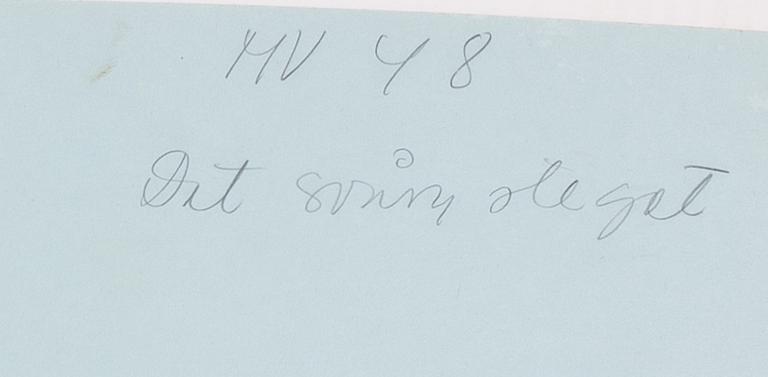 MV 48
Det svåra steget